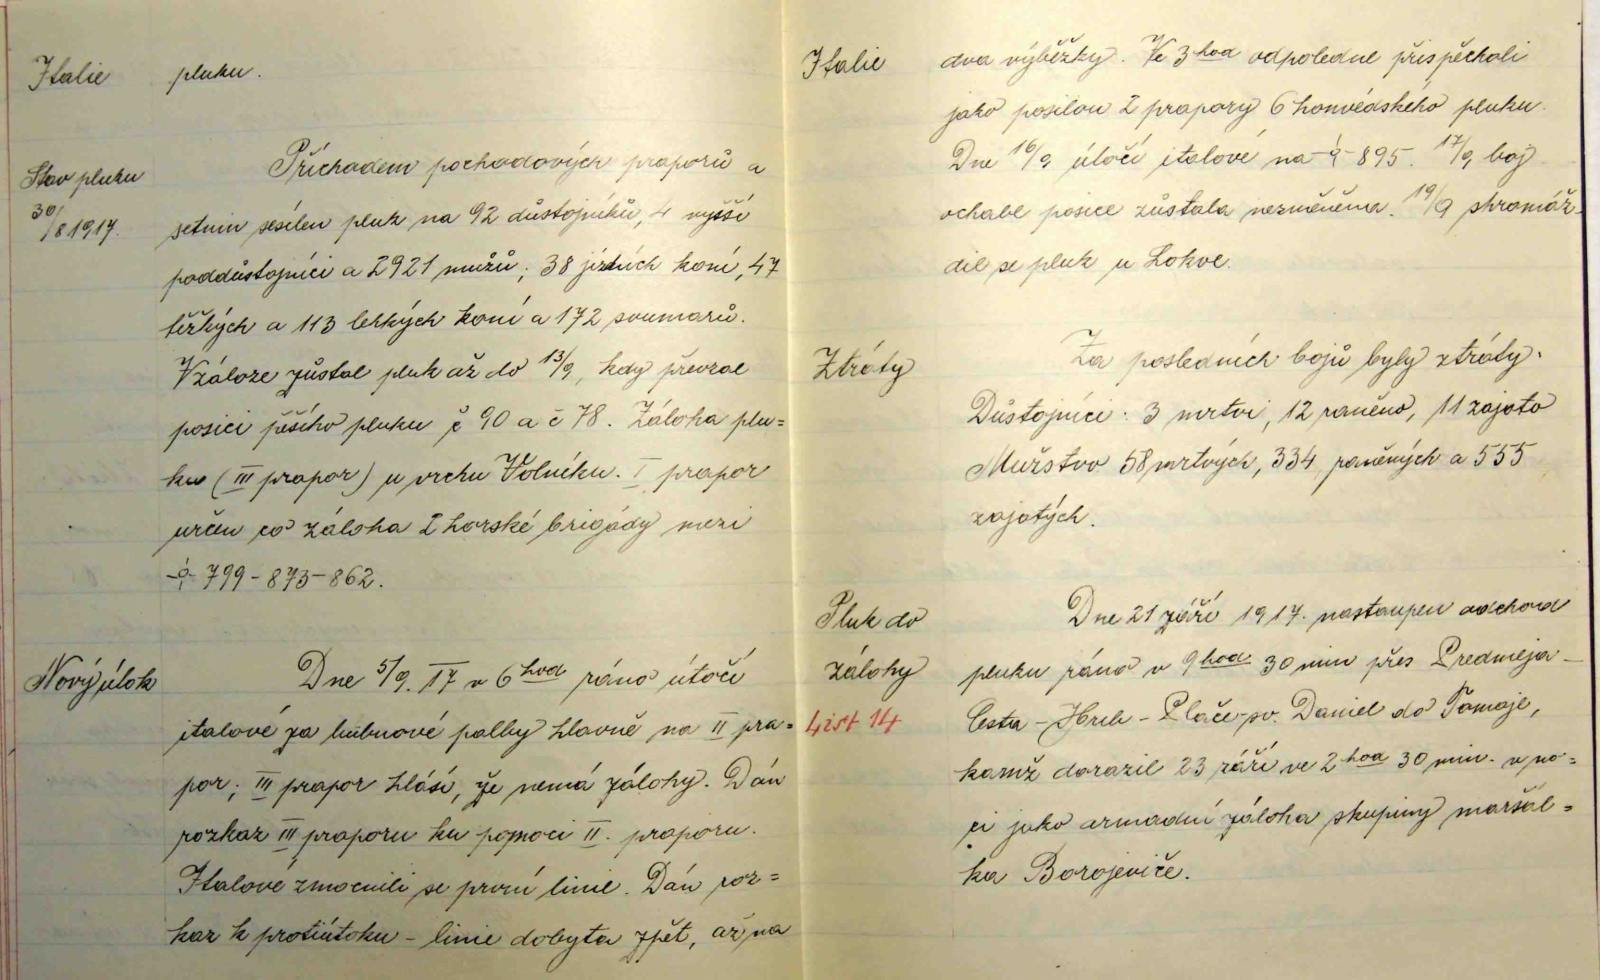 Italie pluku.
Příchodem pochodových praporů a
Stav pluku
30/8 1917. setnin sesílen pluk na 92 důstojníků, 4 vyšší
poddůstojníci a 2921 mužů; 38 jízdních koní, 47
těžkých a 113 lehkých koní a 172 soumarů.
V záloze zůstal pluk až do 13/9, kdy převzal
posici pěšího pluku č 90 a č 78. Záloha plu=
ku (III prapor) u vrchu Volníku. I prapor
určen co záloha 2 horské brigády mezi
799 - 873 - 862.
Nový útok Dne 5/9. 17 v 6 hod ráno útočí
italové za bubnové palby hlavně na II pra=
por; III prapor hlásí, že nemá zálohy. Dán
rozkaz III praporu ku pomoci II. praporu.
Italové zmocnili se první linie. Dán roz=
kaz k protiútoku - linie dobyta zpět, až na
Italie dva výběžky. Ve 3 hod odpoledne přispěchali
jako posilou 2 prapory 6 honvédského pluku.
Dne 16/9 útočí italové na 895. 17/9 boj
ochabl posice zůstala nezměněna. 19/9 shromáž-
dil se pluk u Lokve.
Ztráty Za posledních bojů byly ztráty:
Důstojníci: 3 mrtvi, 12 raněno, 11 zajato
Mužstvo 58 mrtvých, 334 raněných a 555
zajatých.
Pluk do Dne 21 září 1917. nastoupen odchod
zálohy pluku ráno v 9 hod 30 min přes Predmeja -
List 14 Cesta - Hrib - Plače - sv. Daniel do Tomaje,
kamž dorazil 23 září ve 2 hod 30 min. v no=
ci jako armádní záloha skupiny maršál=
ka Borojeviče.